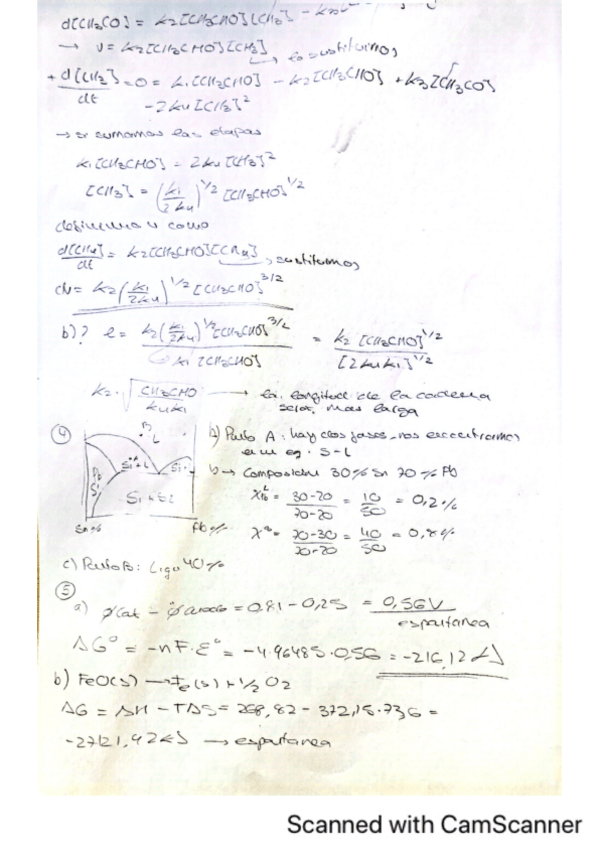 d[CH3CO] = k2[CH3CHO][CH3] -
→ v = k2[CH3CHO][CH3] → lo sustituimos
+ d[CH3]/dt = 0 = k1[CH3CHO] - k2[CH3CHO] + k3[CH3CO]
- 2k4[CH3]²
→ si sumamos las etapas
k1[CH3CHO] = 2k4[CH3]²
[CH3] = (k1/2k4)^1/2 [CH3CHO]^1/2
v como
d[CH4]/dt = k2[CH3CHO][CH3] → sustituimos
= k2(k1/2k4)^1/2 [CH3CHO]^3/2
b)? l = k2(k1/2k4)^1/2 [CH3CHO]^3/2 / k1[CH3CHO] = k2[CH3CHO]^1/2 / [2k4k1]^1/2
k2·√(CH3CHO/k4k1) → la longitud de la cadena
será más larga
④ B
L
A
S1+L
S1
S1+S2
Sn% Pb%
a) Punto A: hay dos fases, nos encontramos
en eq. S-L
b → Composición 30% Sn 70% Pb
= 30-20/70-20 = 10/50 = 0,2%
= 70-30/70-20 = 40/50 = 0,8%
c) Punto B: Liq 40%
⑤
a) φcat - φánodo = 0,81 - 0,25 = 0,56V
espontánea
ΔG° = -nF·E° = -4·96485·0,56 = -216,12 kJ
b) FeO(s) → Fe(s) + 1/2 O2
ΔG = ΔH - TΔS = 268,82 - 372,15·736 =
-27121,42 kJ → espontánea
Scanned with CamScanner